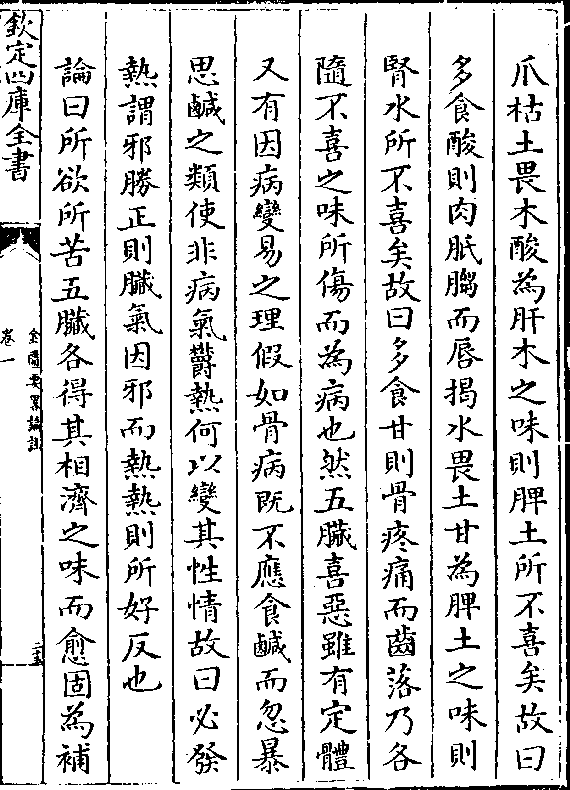 爪枯土畏木酸為肝木之味則脾土所不喜矣故曰
多食酸則肉胝䐢而唇揭水畏土甘為脾土之味則
腎水所不喜矣故曰多食甘則骨疼痛而齒落乃各
隨不喜之味所傷而為病也然五臟喜惡雖有定體
又有因病變易之理假如骨病既不應食鹹而忽暴
思鹹之類使非病氣欝熱何以變其性情故曰必發
熱謂邪勝正則臟氣因邪而熱熱則所好反也
論曰所欲所苦五臟各得其相濟之味而愈固為補
欽定四庫全書
金匱要畧論註
卷一
二十五